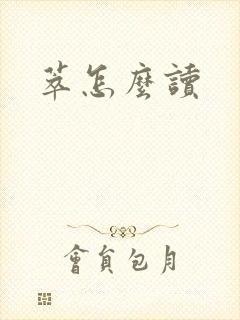 萃怎麼讀
會員包月